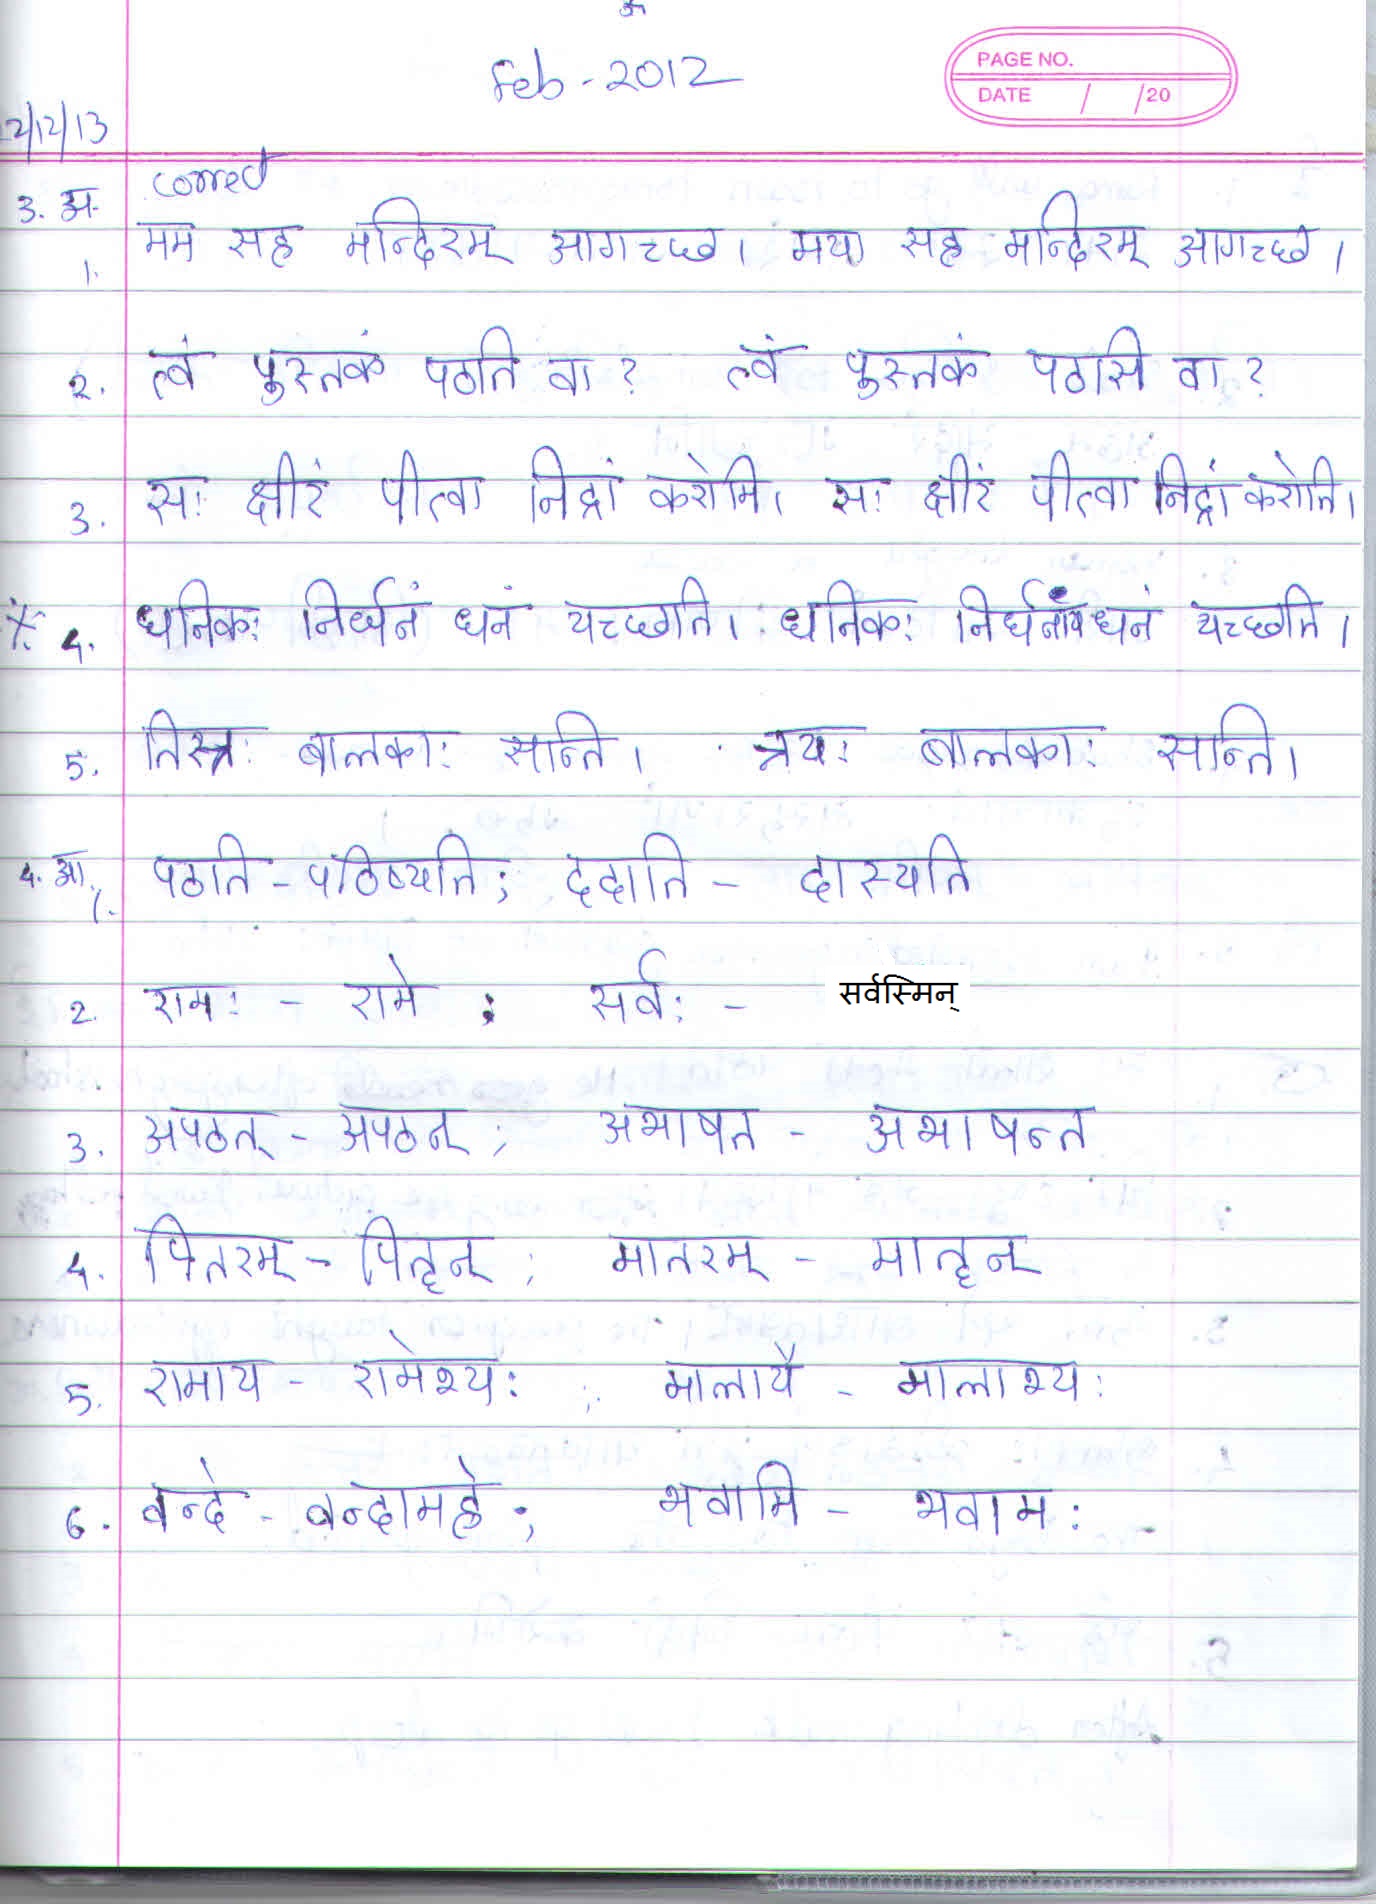 Feb - 2012
PAGE NO.
DATE / /20
22/12/13
correct
3. अ.
1. मम सह मन्दिरम् आगच्छ। मया सह मन्दिरम् आगच्छ।
2. त्वं पुस्तकं पठति वा? त्वं पुस्तकं पठसि वा?
3. सः क्षीरं पीत्वा निद्रां करोमि। सः क्षीरं पीत्वा निद्रां करोति।
4. धनिकः निर्धनं धनं यच्छति। धनिकः निर्धनाय धनं यच्छति।
5. तिस्त्रः बालकाः सन्ति। त्रयः बालकाः सन्ति।
4. आ.
1. पठति - पठिष्यति; ददाति - दास्यति
2. रामः - रामे ; सर्वः - सर्वस्मिन्
3. अपठत् - अपठन् ; अभाषत - अभाषन्त
4. पितरम् - पितॄन् ; मातरम् - मातॄन्
5. रामाय - रामेभ्यः ; मालायै - मालाभ्यः
6. वन्दे - वन्दामहे ; भवामि - भवामः